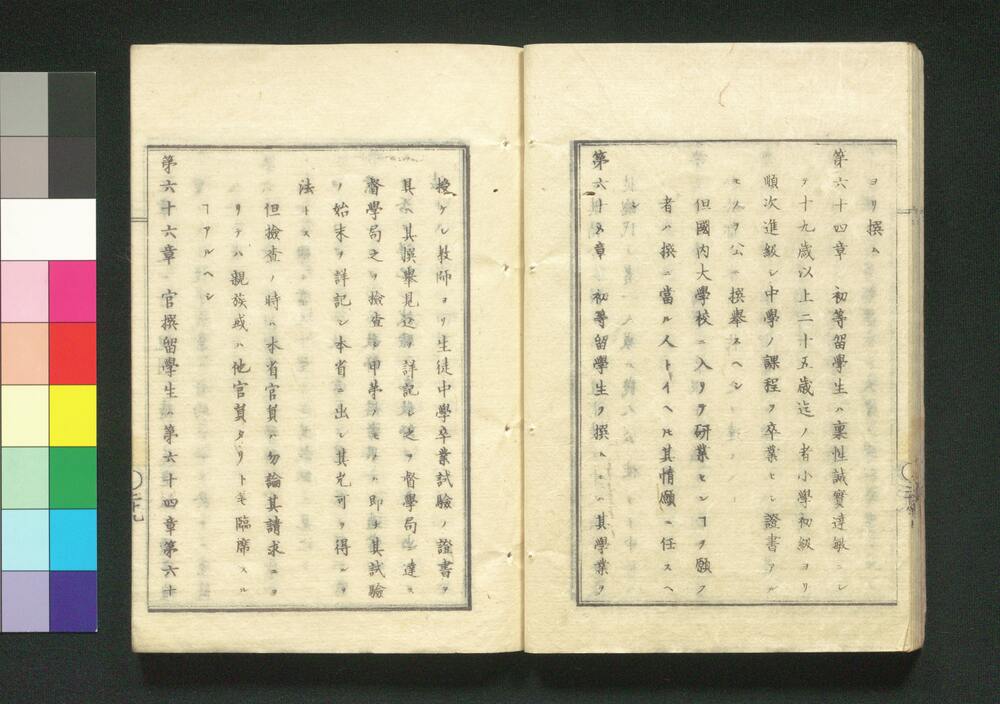 ヨリ撰ム
第六十四章 初等留學生ハ稟性誠實達敏ニシ
テ十九歳以上二十五歳迄ノ者小學初級ヨリ
順次進級シ中學ノ課程ヲ卒業セシ證書アル
モノヲ公ニ撰擧スヘシ
但國内大學校ニ入リテ研業センヿヲ願フ
者ハ撰ニ當ル人トイヘ𪜈其情願ニ任スヘ
シ
第六十五章 初等留學生ヲ撰ムニハ其學業ヲ
授ケシ教師ヨリ生徒中學卒業試驗ノ證書ヲ
具ヘ其撰擧見込ヲ詳記シ之ヲ督學局ニ達ス
督學局之ヲ檢査シ甲第ノモノハ即チ其試驗
ノ始末ヲ詳記シ本省ニ出シ其允可ヲ得ルヲ
法トス
但檢査ノ時ハ本省官員ハ勿論其請求ニヨ
リテハ親族或ハ他官員タリト𪜈臨席スル
ヿアルヘシ
第六十六章 官撰留學生ハ第六十四章第六十
二十九